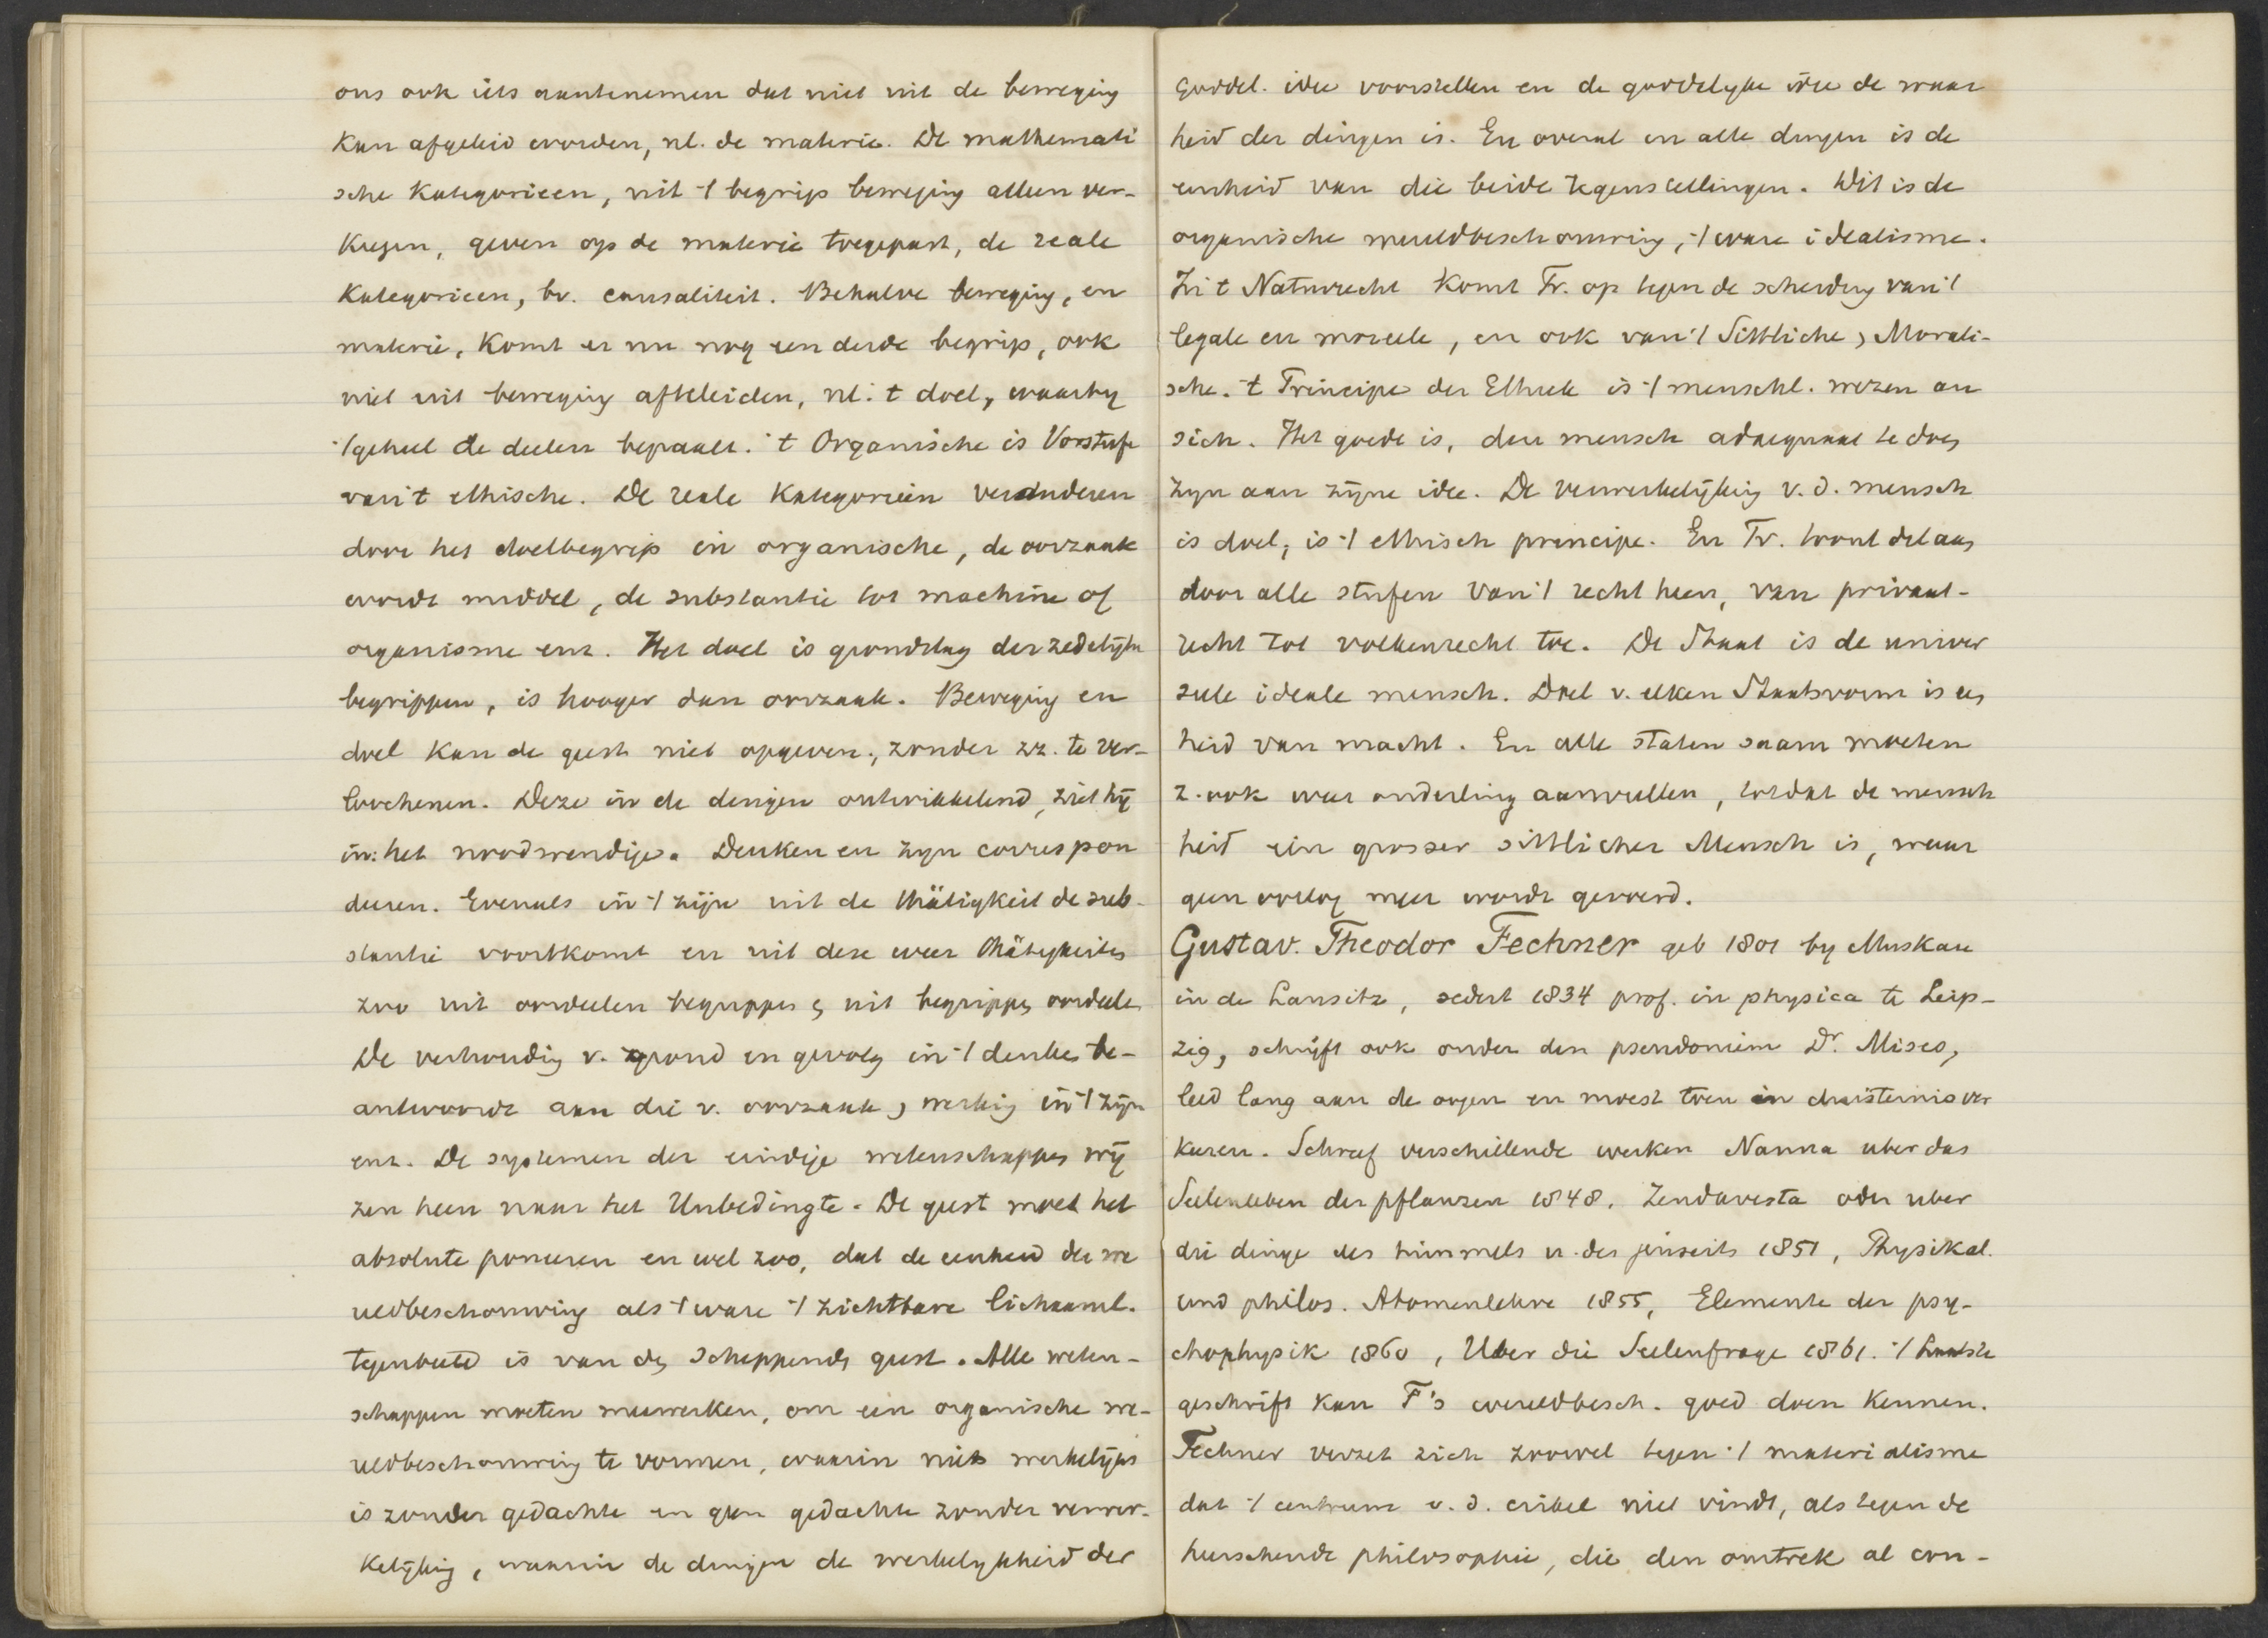 ons ook iets aantenemen dat niet uit de beweging
kan afgeleid worden, nl. de materie. De mathemati
sche kategorieen, uit 't begrip beweging alleen ver-
kregen, geven op de materie toegepast, de reale
kategorieen, bv. causaliteit. Behalve beweging, en
materie, komt er nu nog een derde begrip, ook
niet uit beweging afteleiden, nl. 't doel, waarbij
't geheel de deelen bepaalt. 't Organische is Vorstufe
van 't ethische. De reale kategorieën veranderen
door het doelbegrip in organische, de oorzaak
wordt middel, de substantie tot machine of
organisme enz. Het doel is grondslag der zedelijke
begrippen, is hooger dan oorzaak. Beweging en
doel kan de geest niet opgeven, zonder zz. te ver-
loochenen. Deze in de dingen ontwikkelend, ziet hij
in: het noodwendige. Denken en zijn correspon
deeren. Evenals in 't zijn uit de thätigkeit de sub-
stantie voortkomt en uit deze weer thätigkeiten
zoo uit oordeelen begrippen en uit begrippen oordeelen
De verhouding v. grond en gevolg in 't denken be-
antwoordt aan die v. oorzaak en werking in 't zijn
enz. De systemen der eindige wetenschappen wij
zen heen naar het Unbedingte. De geest moet het
absolute poneeren en wel zoo, dat de eenheid der we
reldbeschouwing als 't ware 't zichtbare lichaaml.
tegenbeeld is van den scheppenden geest. Alle weten-
schappen moeten meewerken, om een organische we-
reldbeschouwing te vormen, waarin niets werkelijks
is zonder gedachte en geen gedachte zonder verwer-
kelijking, waarin de dingen de werkelijkheid der
goddel. idee voorstellen en de goddelijke idee de waar
heid der dingen is. En overal en alle dingen is de
eenheid van die beide tegenstellingen. Dit is de
organische wereldbeschouwing, 't ware idealisme.
In 't Naturrecht komt Tr. op tegen de scheiding van 't
legale en moreele, en ook van 't Sittliche en Morali-
sche. 't Principe der Ethiek is 't menschl. wezen an
sich. Het goede is, den mensch adaequaat te doen
zijn aan zijne idee. De verwerkelijking v. d. mensch
is doel, is 't ethisch principe. En Tr. toont dat aan
door alle stufen van 't recht heen, van privaat-
recht tot volkenrecht toe. De Staat is de univer
sele ideale mensch. Doel v. elken Staatsvorm is een
heid van macht. En alle staten saam moeten
z. ook weer onderling aanvullen, totdat de mensch
heid ein grosser sittlicher Mensch is, waar
geen oorlog meer wordt gevoerd.
Gustav. Theodor Fechner geb 1801 by Muskau
in de Lausitz, sedert 1834 prof. in physica te Leip-
zig, schrijft ook onder den pseudoniem Dr. Mises,
leed lang aan de oogen en moest toen in duisternis ver
keeren. Schreef verschillende werken Nanna uber das
Seelenleben der pflanzen 1848. Zendavesta oder uber
die dinge des himmels u. des jenseits 1851, Physikal.
und philos. Atomenlehre 1855, Elemente der psy-
chophysik 1860, Uber die Seelenfrage 1861. 't Laatste
geschrift kan F's wereldbesch. goed doen kennen.
Fechner verzet zich zoowel tegen 't materialisme
dat 't centrum v. d. cirkel niet vindt, als tegen de
heerschende philosophie, die den omtrek al con-